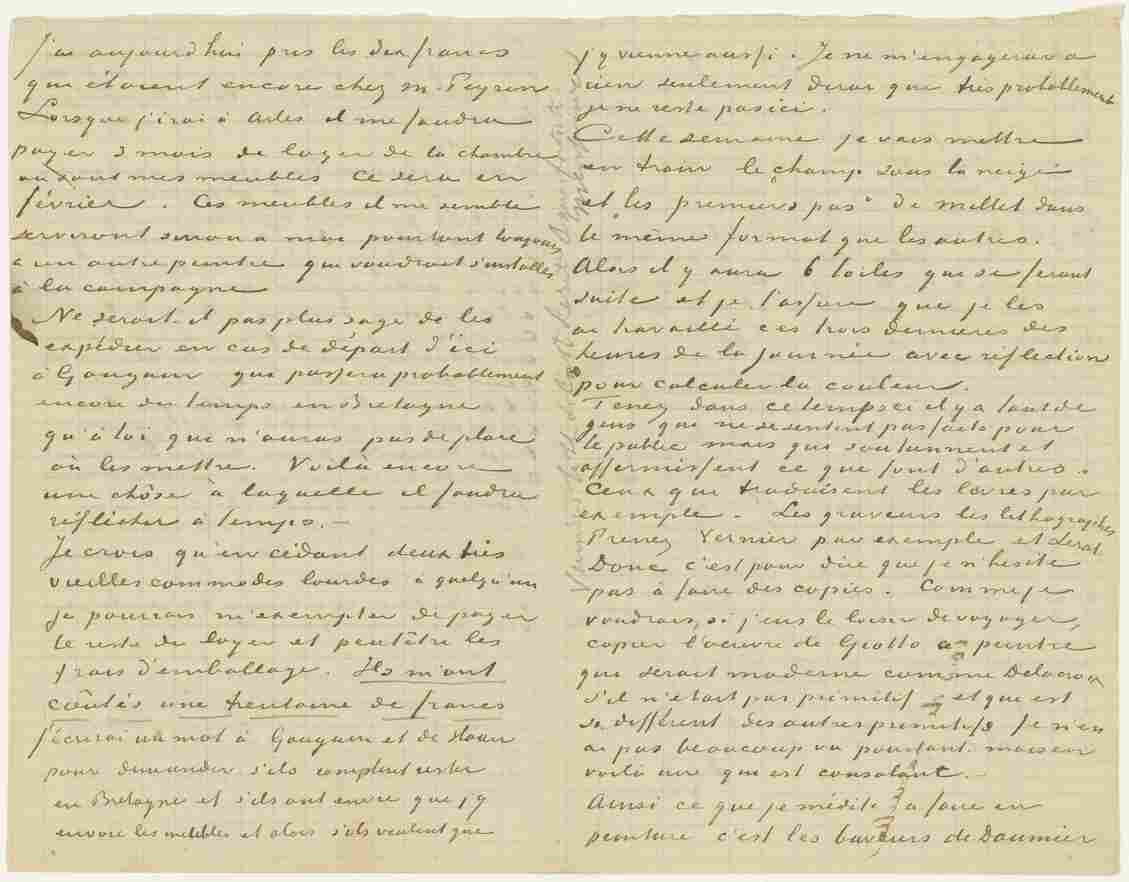 J'ai aujourd'hui pris les dix francs
qui étaient encore chez M. Peyron
Lorsque j'irai à Arles il me faudra
payer 3 mois de loyer de la chambre
où sont mes meubles Ce sera en
février. Ces meubles il me semble
serviront sinon à moi pourtant toujours
à un autre peintre qui voudrait s'installer
à la campagne
Ne serait-il pas plus sage de les
expédier en cas de départ d'ici
à Gauguin qui passera probablement
encore du temps en Bretagne
qu'à toi qui n'auras pas de place
où les mettre. Voilà encore
une chôse à laquelle il faudra
réflechir à temps. —
Je crois qu'en cédant deux très
vieilles commodes lourdes à quelqu'un
je pourrais m'exempter de payer
le reste du loyer et peutêtre les
frais d'emballage. Ils m'ont
coûtés une trentaine de francs
J'écrirai un mot à Gauguin et de Haan
pour demander s'ils comptent rester
en Bretagne et s'ils ont envie que j'y
envoie les meubles et alors s'ils veulent que
j'y vienne aussi. Je ne m'engagerai à
rien seulement dirai que très probablement
je ne reste pas ici.
Cette semaine je vais mettre
en train le champ sous la neige
et les premiers pas de Millet dans
le même format que les autres.
Alors il y aura 6 toiles qui se feront
suite et je t'assure que je les
ai travaillé ces trois dernières des
heures de la journée avec réflection
pour calculer la couleur.
Tenez dans ce temps ci il y a tant de
gens qui ne se sentent pas faits pour
le public mais qui soutiennent et
affermissent ce que font d'autres.
Ceux qui traduisent les livres par
exemple. Les graveurs les lithographes
Prenez Vernier par exemple et Lerat.
Donc c'est pour dire que je n'hésite
pas à faire des copies. Comme je
voudrais, si j'eus le loisir de voyager,
copier l'oeuvre de Giotto peintre
qui serait moderne comme Delacroix
s'il n'était pas primitif et qui est
si différent des autres primitifs Je n'en
ai pas beaucoup vu pourtant mais en
voilà un qui est consolant. —
Ainsi ce que je médite à faire en
peinture c'est les buveurs de Daumier